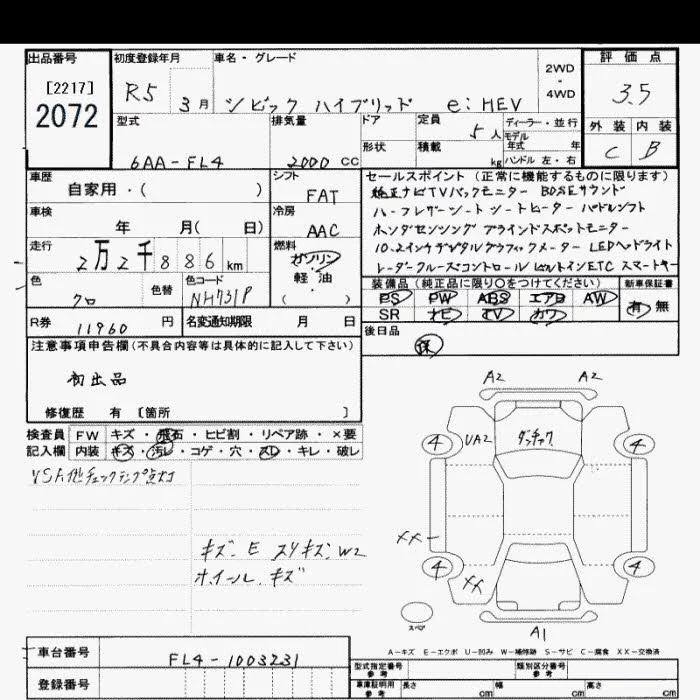 出品番号 初度登録年月 車名・グレード 2WD・4WD 評価点
[2217] 2072 R5 3月 シビック ハイブリッド e:HEV 3.5
型式 排気量 ドア 定員 5人 ディーラー・並行 外装 内装
モデル年式 年
形状 積載 kg ハンドル 左・右 C B
6AA-FL4 2000 CC
車歴 シフト セールスポイント (正常に機能するものに限ります)
自家用・( ) FAT 純正ナビTVバックモニター BOSEサウンド
車検 冷房 ハーフレザーシート シートヒーター パドルシフト
年 月( 日) AAC ホンダセンシング ブラインドスポットモニター
走行 燃料 10.2インチデジタルグラフィックメーター LEDヘッドライト
2万2千886km ガソリン レーダークルーズコントロール ビルトインETC スマートキー
色 色替 色コード 軽油 装備品 (純正品に限り○をつけてください) 新車保証書
クロ NH731P ( ) PS PW ABS エアB AW 有 無
SR ナビ TV カワ
R券 11960円 名変通知期限 月 日 後日品
保
注意事項申告欄(不具合内容等は具体的に記入して下さい)
初出品
修復歴 有 [箇所 ]
A2 A2
検査員 FW キズ・飛石・ヒビ割・リペア跡・×要
記入欄 内装 キズ・汚レ・コゲ・穴・スレ・キレ・破レ
4 UA2 4
VSA他チェックランプ点灯
キズ、E スリキズ、W2
ホイール、キズ
XX
4 XX 4
スペア
A1
A-キズ E-エクボ U-凹み W-補修跡 S-サビ C-腐食 XX-交換済
車台番号 FL4-1003231 型式指定番号 参考 類別区分番号 参考
登録番号 車庫証明用 参考 長さ cm 幅 cm 高さ cm